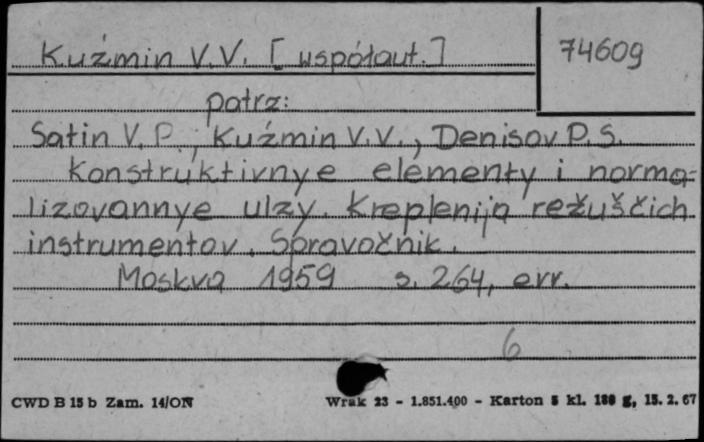 Kuźmin V.V. [współaut.]
74609
patrz:
Satin V.P., Kuźmin V.V., Denisov P.S.
Konstruktivnye elementy i norma-
lizovannye ulzy. Kreplenija režuščich
instrumentov. Spravočnik.
Moskva 1959 s. 264, err.
6
CWD B 15 b Zam. 14/ON
Wrak 23 - 1.851.400 - Karton 5 kl. 180 g, 15. 2. 67